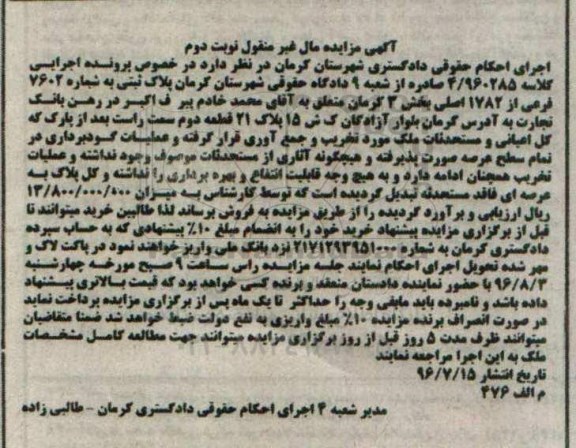 آگهی مزایده مال غیر منقول نوبت دوم
اجرای احکام حقوقی دادگستری شهرستان کرمان در نظر دارد در خصوص پرونده اجرایی
کلاسه ۴/۹۶۰۲۸۵ صادره از شعبه ۹ دادگاه حقوقی شهرستان کرمان پلاک ثبتی به شماره ۷۶۰۲
فرعی از ۱۷۸۲ اصلی بخش ۳ کرمان متعلق به آقای محمد خادم پیر ف اکبر در رهن بانک
تجارت به آدرس کرمان بلوار آزادگان ک ش ۱۵ پلاک ۲۱ قطعه دوم سمت راست بعد از پارک که
کل اعیانی و مستحدثات ملک مورد تخریب و جمع آوری قرار گرفته و عملیات گودبرداری در
تمام سطح عرصه صورت پذیرفته و هیچگونه آثاری از مستحدثات موصوف وجود نداشته و عملیات
تخریب همچنان ادامه دارد و به هیچ وجه قابلیت انتفاع و بهره برداری را نداشته و کل پلاک به
عرصه ای فاقد مستحدثه تبدیل گردیده است که توسط کارشناس به میزان ۱۳/۸۰۰/۰۰۰/۰۰۰
ریال ارزیابی و برآورد گردیده را از طریق مزایده به فروش برساند لذا طالبین خرید میتوانند تا
قبل از برگزاری مزایده پیشنهاد خرید خود را به انضمام مبلغ ۱۰٪ پیشنهادی که به حساب سپرده
دادگستری کرمان به شماره ۲۱۷۱۲۹۳۹۵۱۰۰۰ نزد بانک ملی واریز خواهند نمود در پاکت لاک و
مهر شده تحویل اجرای احکام نمایند جلسه مزایده راس ساعت ۹ صبح مورخه چهارشنبه
۹۶/۸/۳ با حضور نماینده دادستان منعقد و برنده کسی خواهد بود که قیمت بالاتری پیشنهاد
داده باشد و نامبرده باید مابقی وجه را حداکثر تا یک ماه پس از برگزاری مزایده پرداخت نماید
در صورت انصراف برنده مزایده ۱۰٪ مبلغ واریزی به نفع دولت ضبط خواهد شد ضمنا متقاضیان
میتوانند ظرف مدت ۵ روز قبل از روز برگزاری مزایده میتوانند جهت مطالعه کامل مشخصات
ملک به این اجرا مراجعه نمایند
تاریخ انتشار ۹۶/۷/۱۵
م الف ۴۷۶
مدیر شعبه ۴ اجرای احکام حقوقی دادگستری کرمان - طالبی زاده